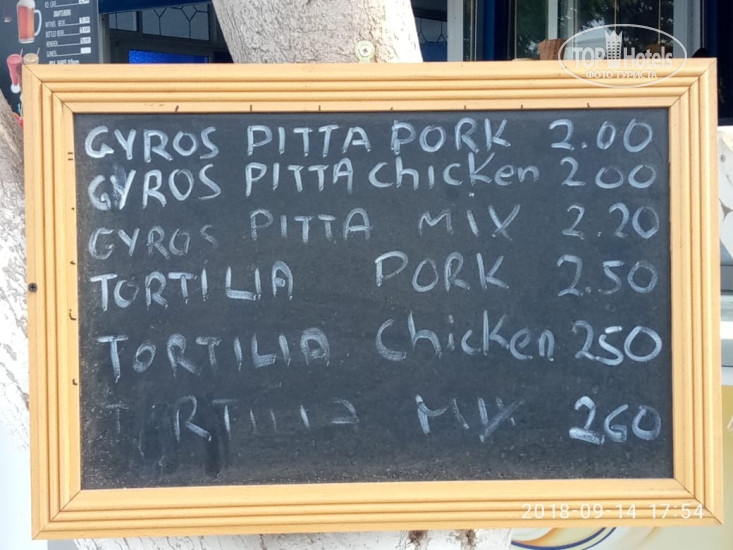 TOP Hotels
ФОТО ТУРИСТА
GYROS PITTA PORK 2.00
GYROS PITTA Chicken 200
GYROS PITTA MIX 2.20
TORTILIA PORK 2.50
TORTILIA Chicken 250
TORTILIA MIX 260
2018-09-14 17:54